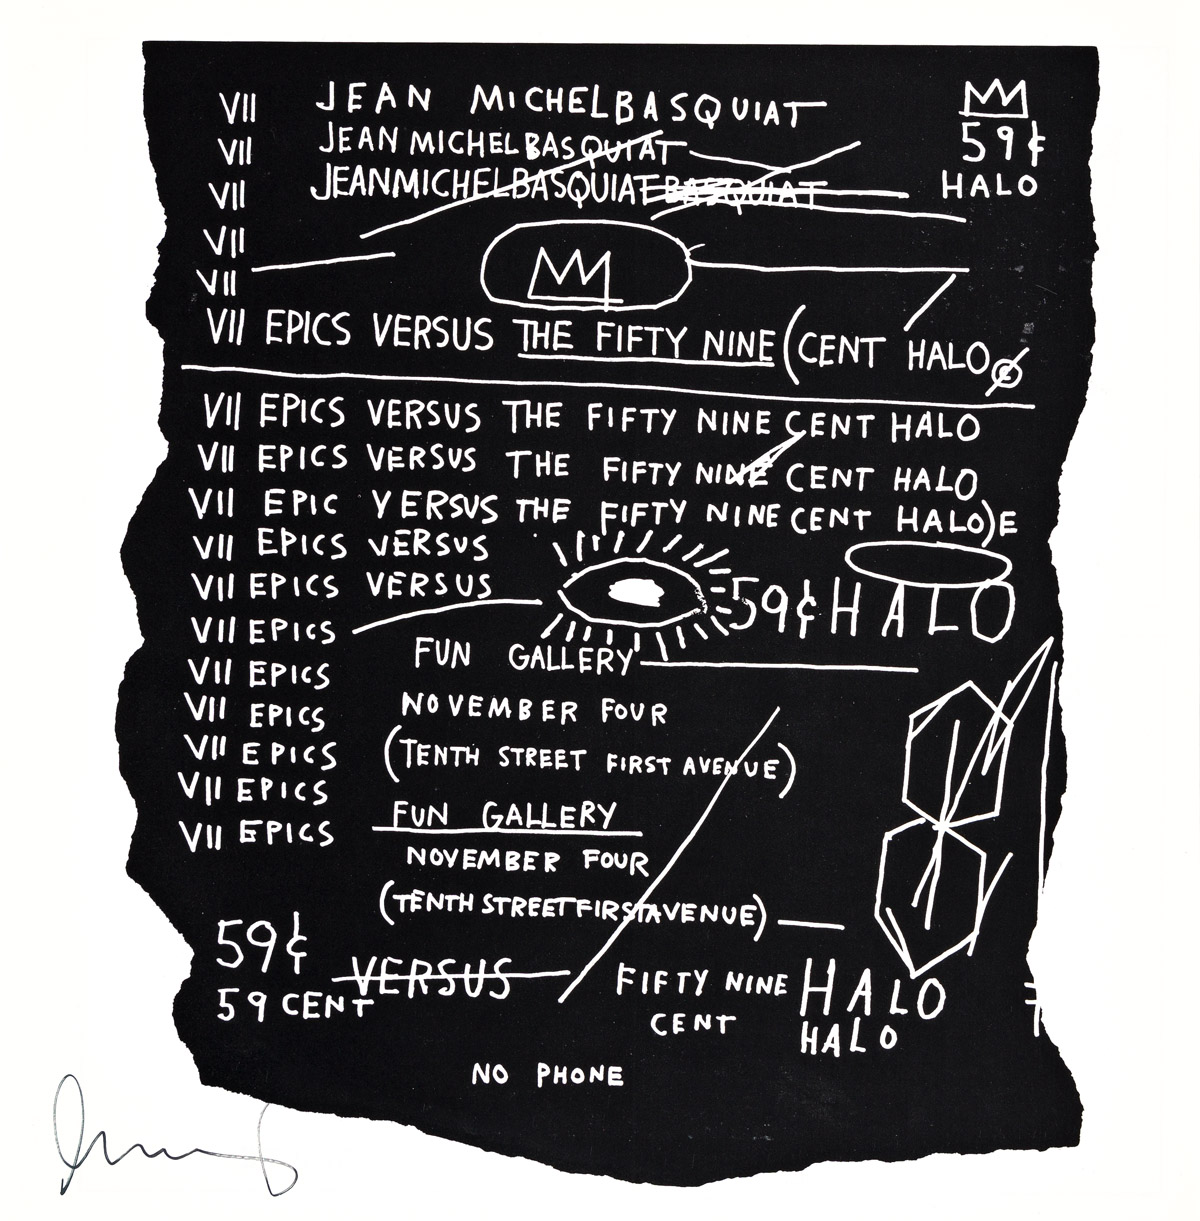 VII JEAN MICHEL BASQUIAT
59¢
VII JEAN MICHEL BASQUIAT
HALO
VII JEANMICHELBASQUIAT BASQUIAT
VII
VII
VII EPICS VERSUS THE FIFTY NINE (CENT HALO ©
VII EPICS VERSUS THE FIFTY NINE CENT HALO
VII EPICS VERSUS THE FIFTY NINE CENT HALO
VII EPIC VERSUS THE FIFTY NINE CENT HALO)E
VII EPICS VERSUS
VII EPICS VERSUS
59¢ HALO
VII EPICS
FUN GALLERY
VII EPICS
VII EPICS
NOVEMBER FOUR
VII EPICS
(TENTH STREET FIRST AVENUE)
VII EPICS
FUN GALLERY
VII EPICS
NOVEMBER FOUR
(TENTH STREET FIRST AVENUE)
59¢
VERSUS
FIFTY NINE HALO
59 CENT
CENT
HALO
NO PHONE